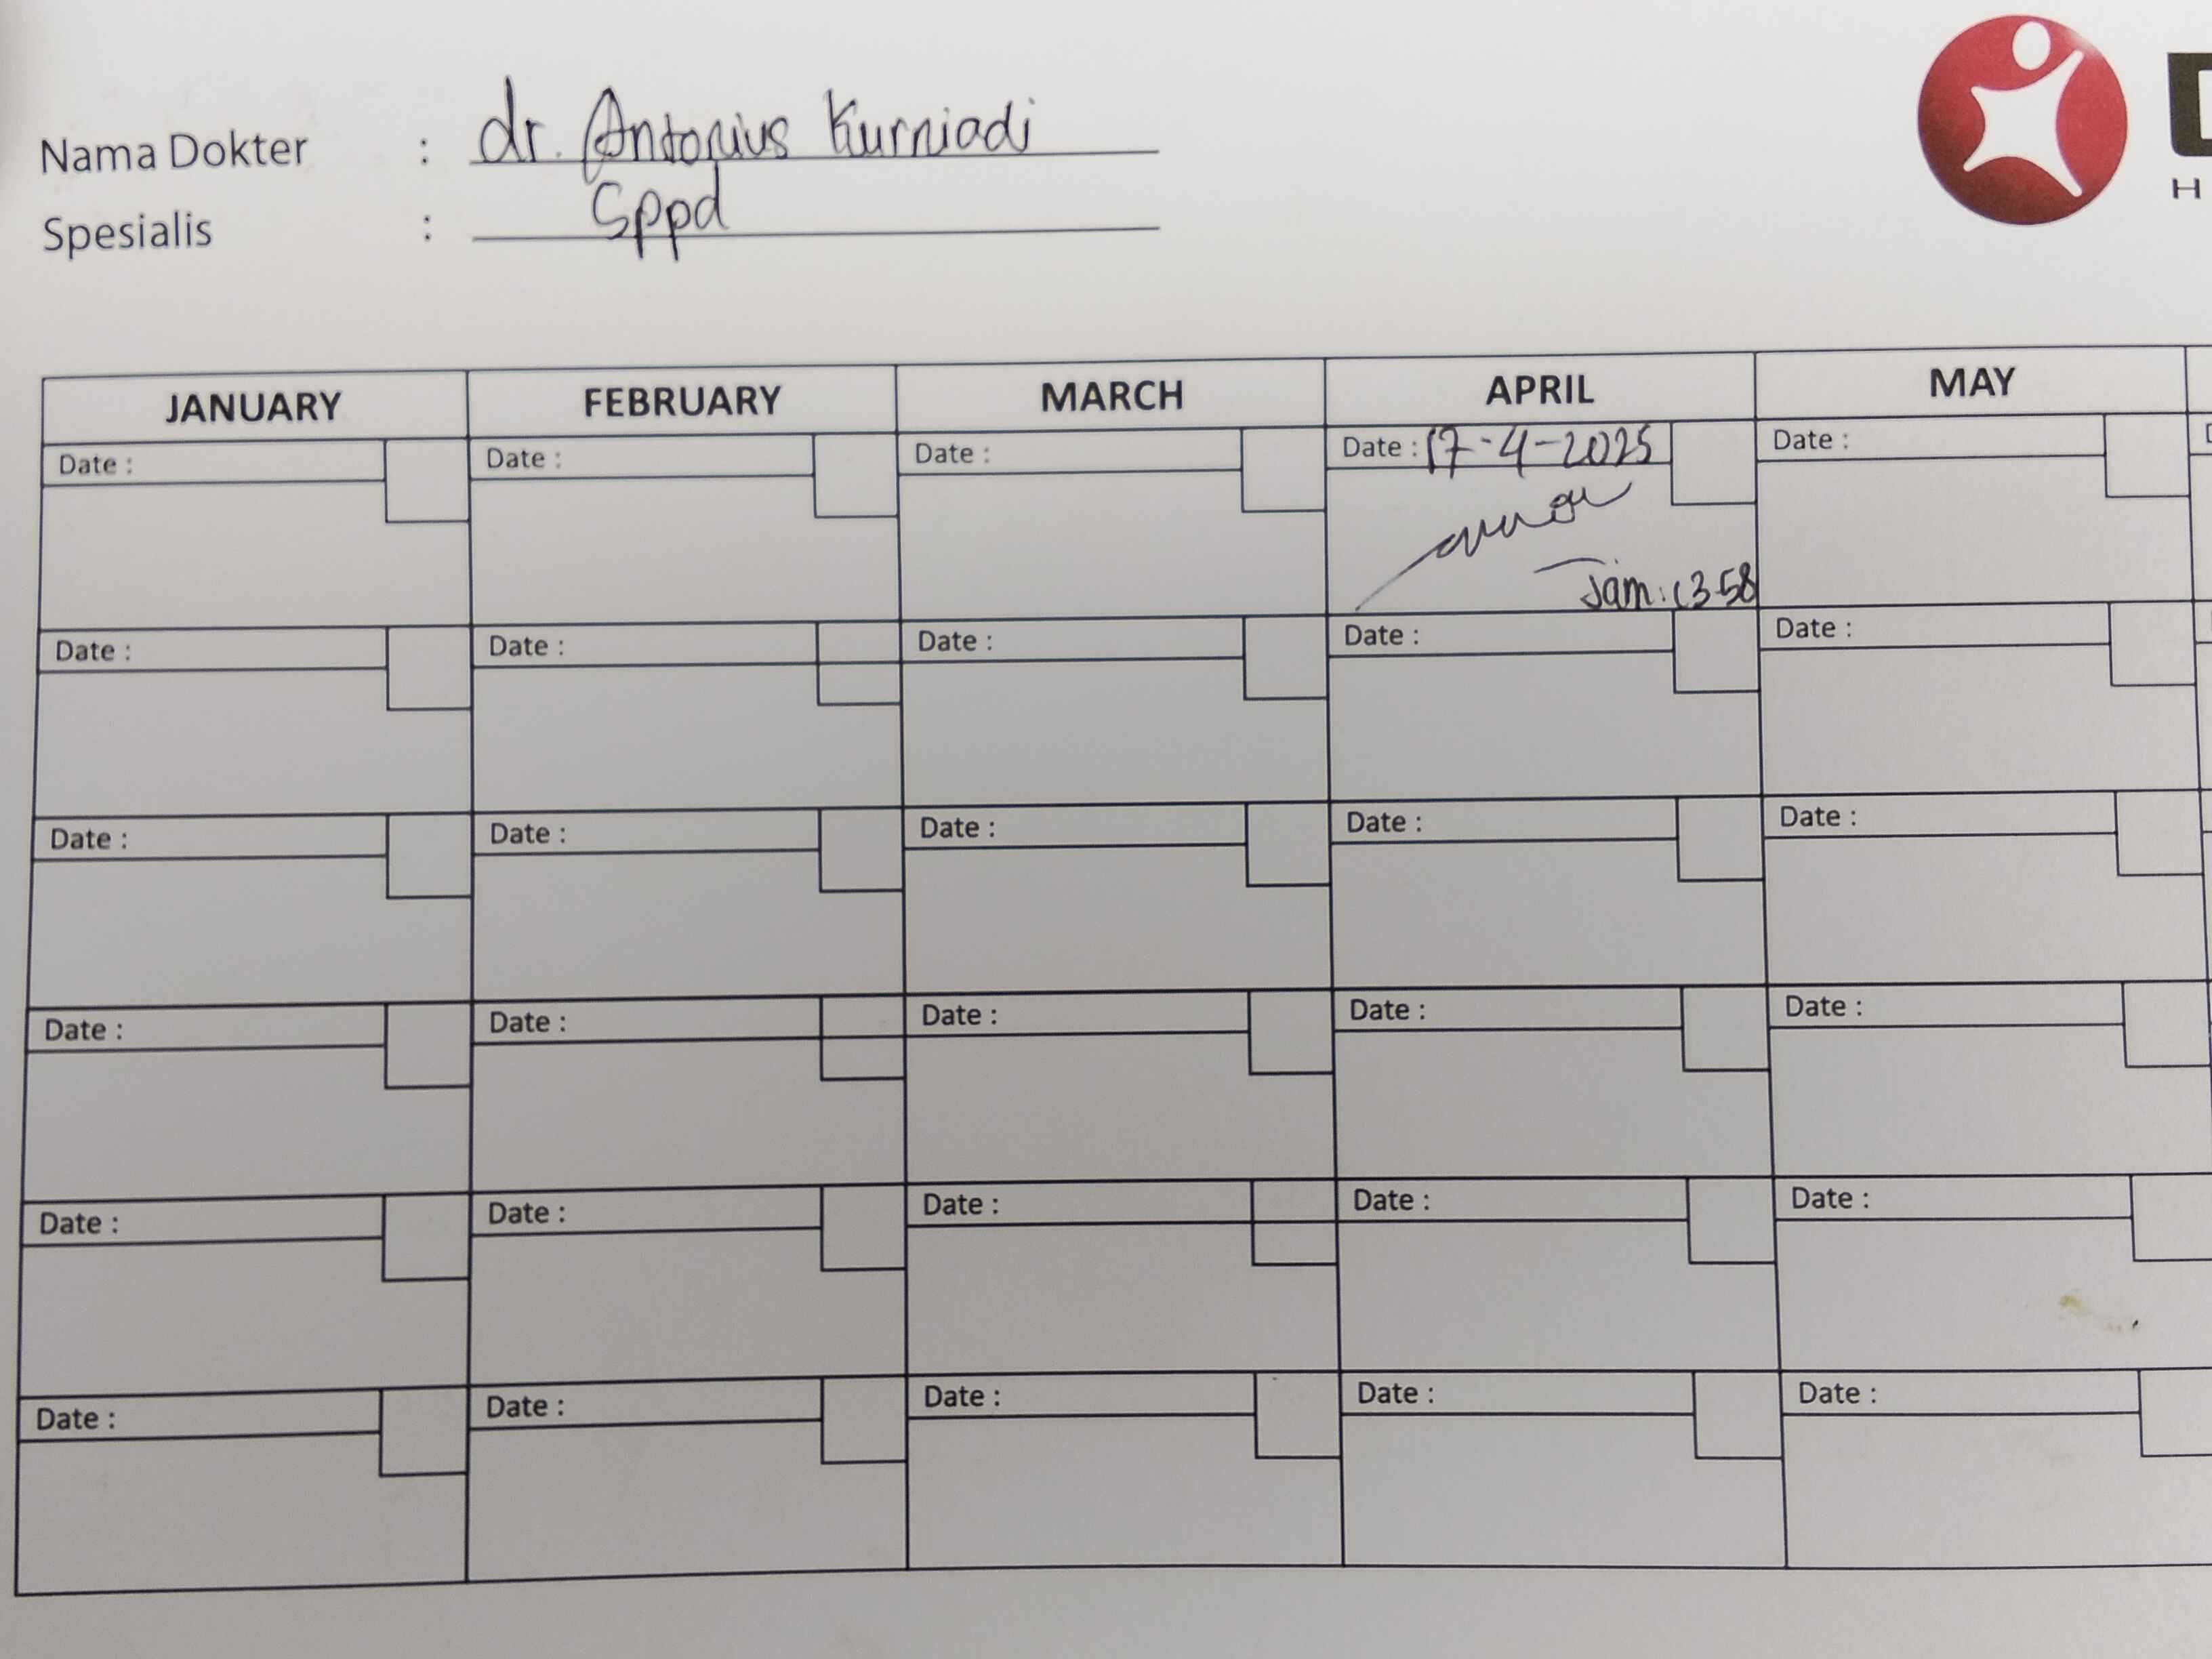 Nama Dokter : dr. Antonius Kurniadi
Spesialis : Sppd
JANUARY FEBRUARY MARCH APRIL MAY
Date : Date : Date : Date : 17-4-2025 Date :
Jam : 13.58
Date : Date : Date : Date : Date :
Date : Date : Date : Date : Date :
Date : Date : Date : Date : Date :
Date : Date : Date : Date : Date :
Date : Date : Date : Date : Date :